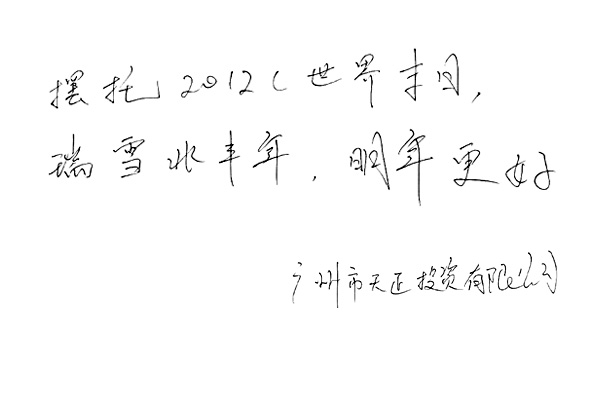 摆托2012(世界末日,
瑞雪兆丰年,明年更好
广州市天正投资有限公司